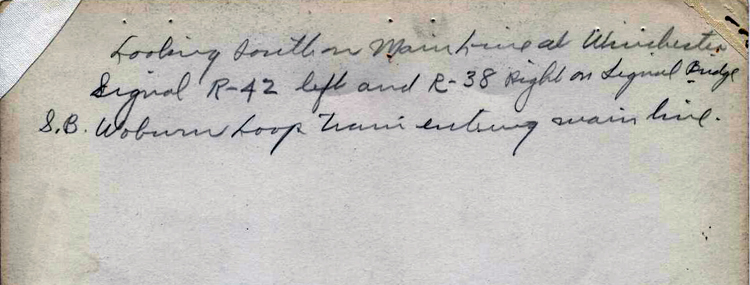 Looking South on Main Line at Winchester
Signal R-42 left and R-38 right on Signal Bridge
S.B. Woburn Loop Train entering main line.